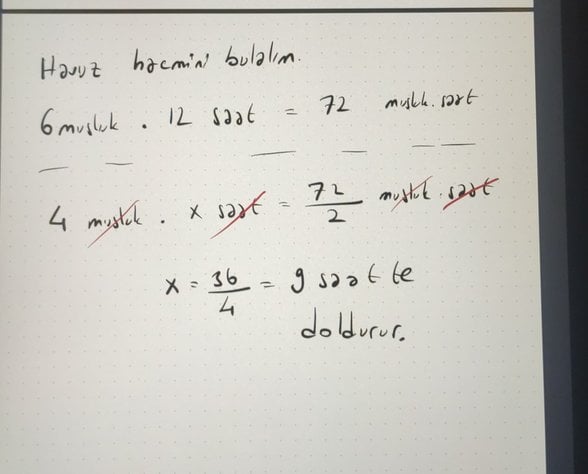 Havuz hacmini bulalım.
6 musluk . 12 saat = 72 muslk. saat
4 musluk . x saat = 72/2 musluk . saat
x = 36/4 = 9 saat te
doldurur.